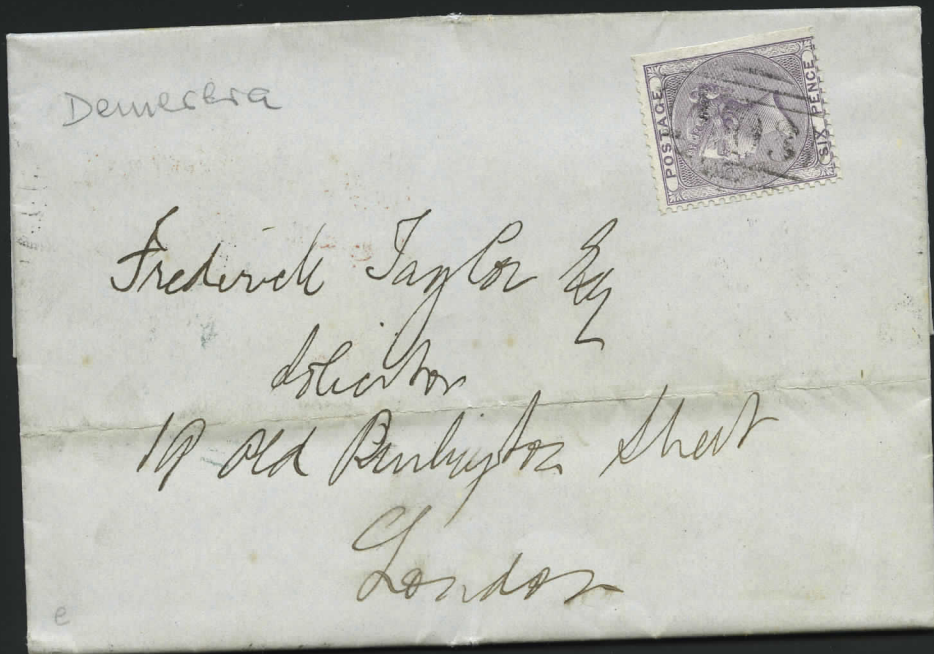 Demerara
POSTAGE
SIX PENCE
Frederick Taylor Esq
Solicitor
19 Old Burlington Street
London
e